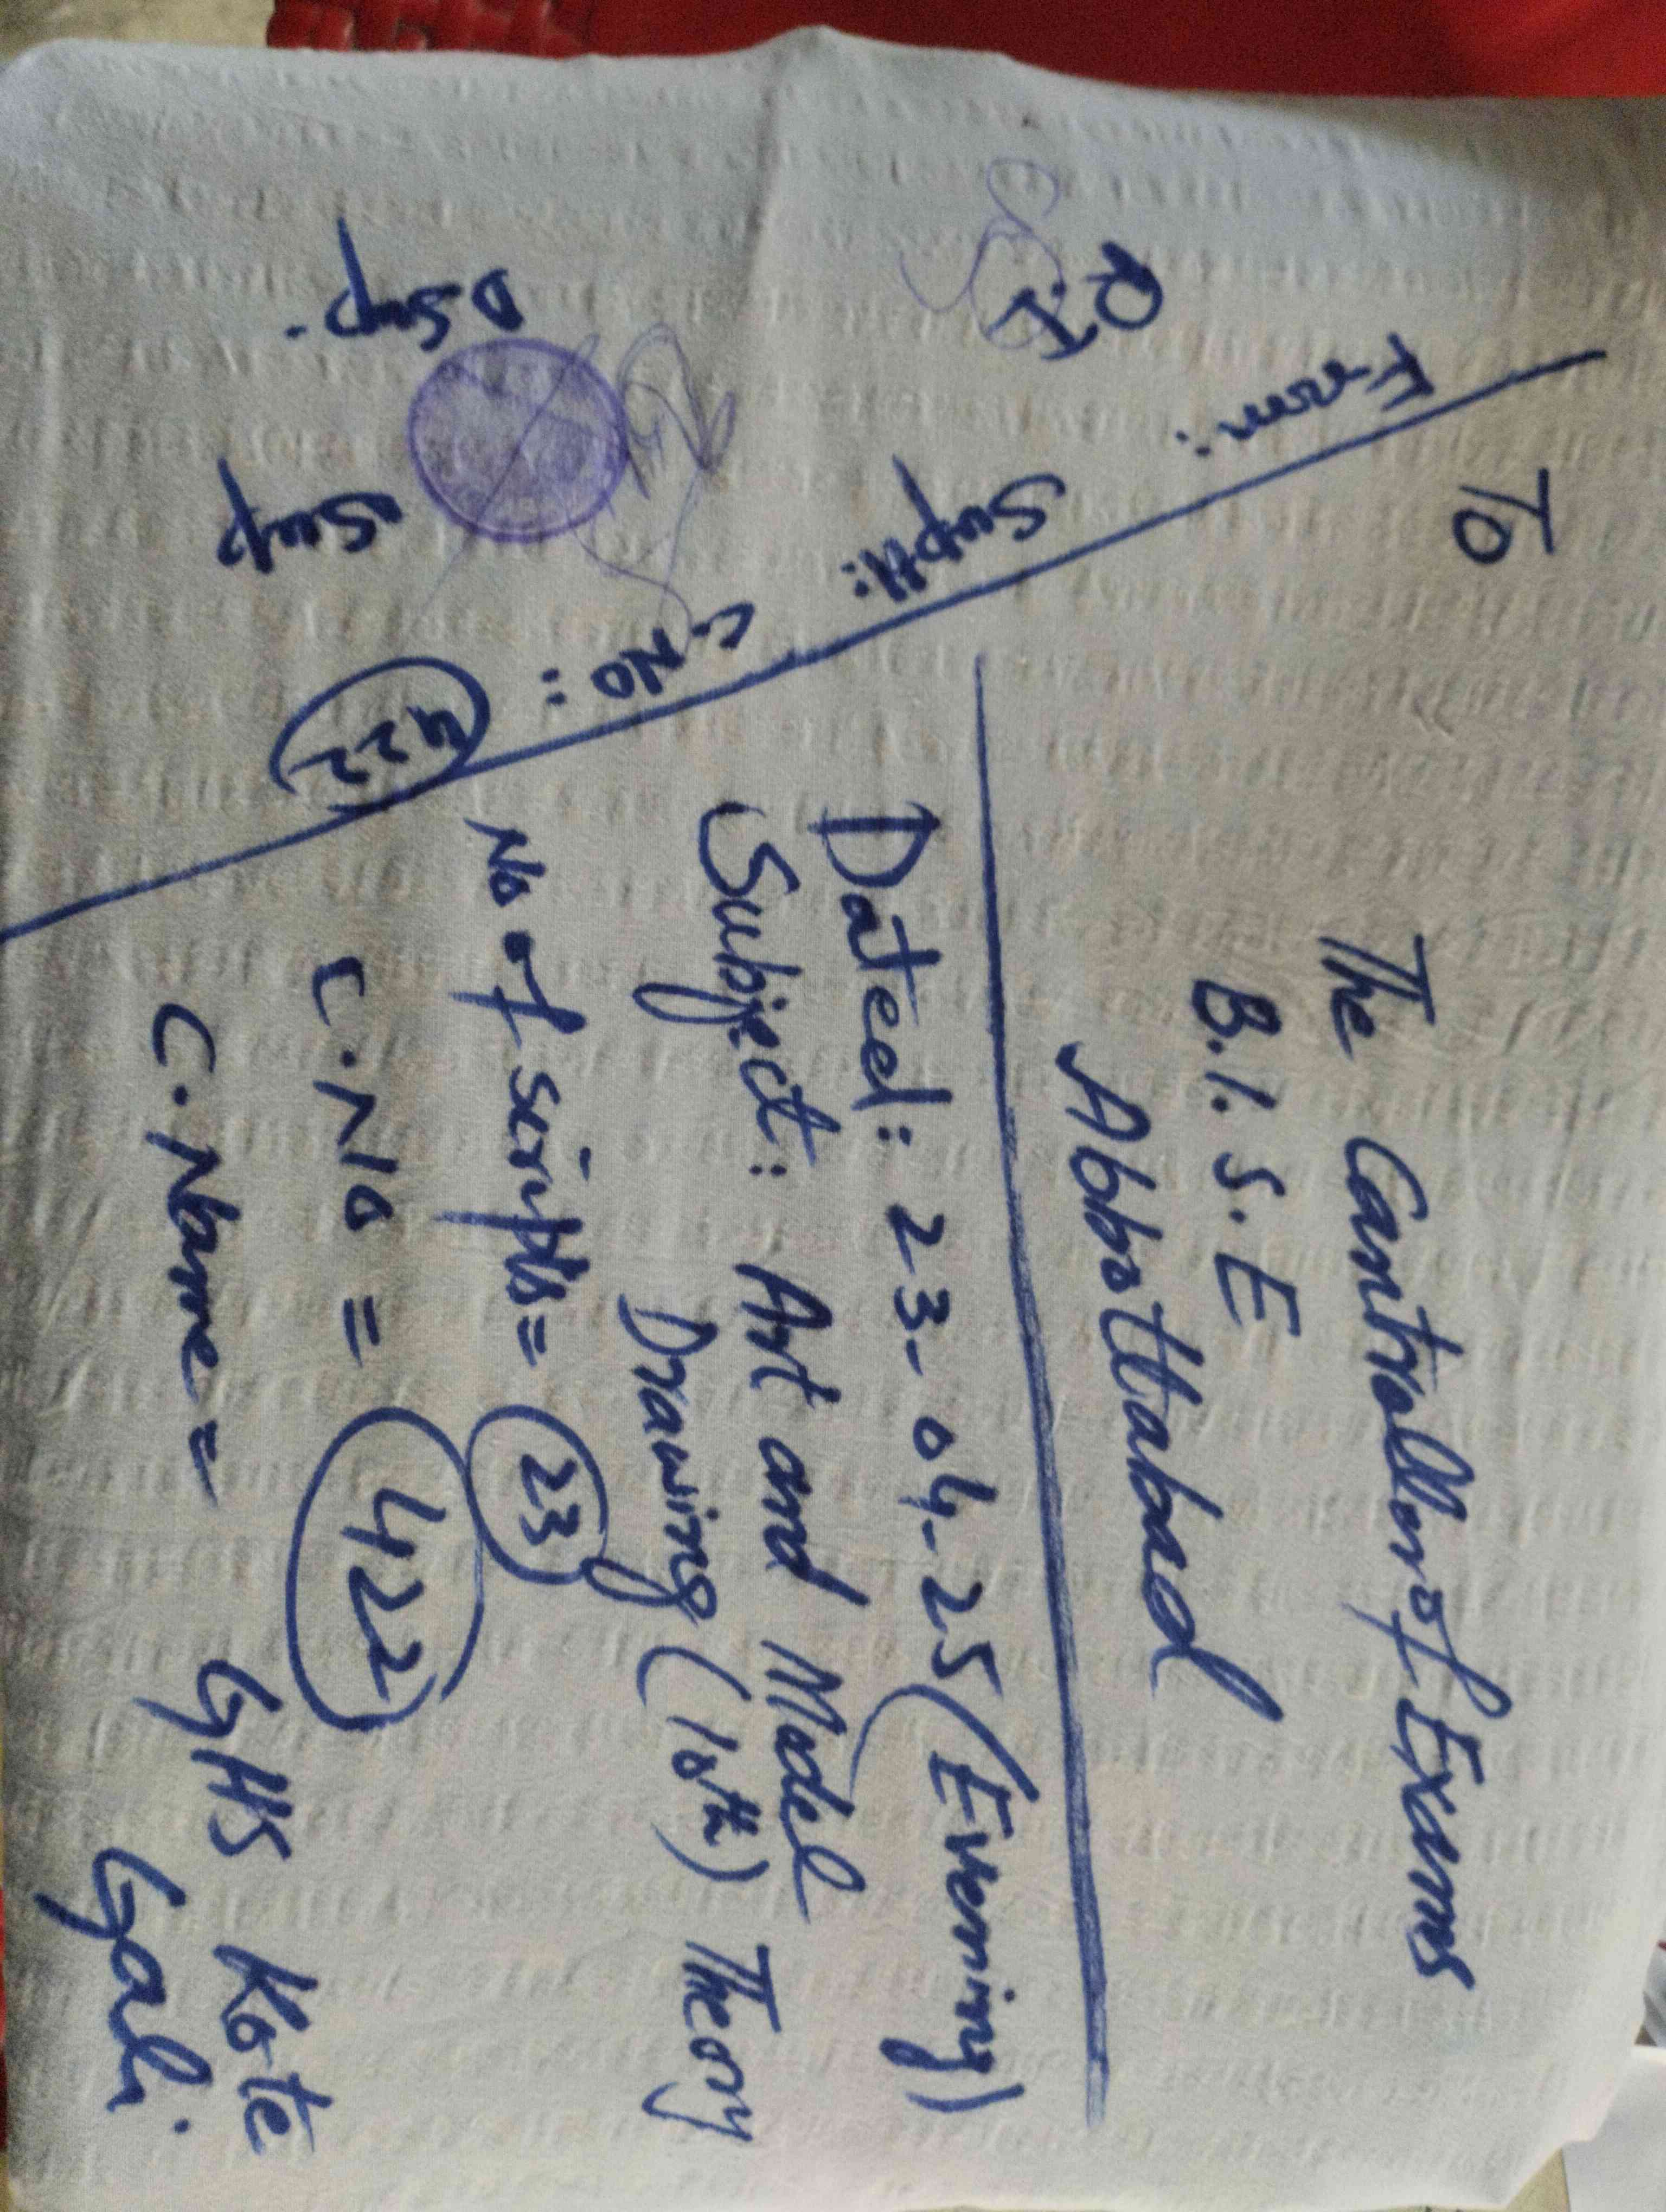 To
The Controller of Exams
B.I.S.E
Abbottabad
Dated: 23-04-25 (Evening)
Subject: Art and Model
Drawing (10th) Theory
No of scripts = 23
C.No = 422
C.Name = GHS Kote
Gali
From:
Supdt:
C.No:
422
R.I
D Sup.
Sup